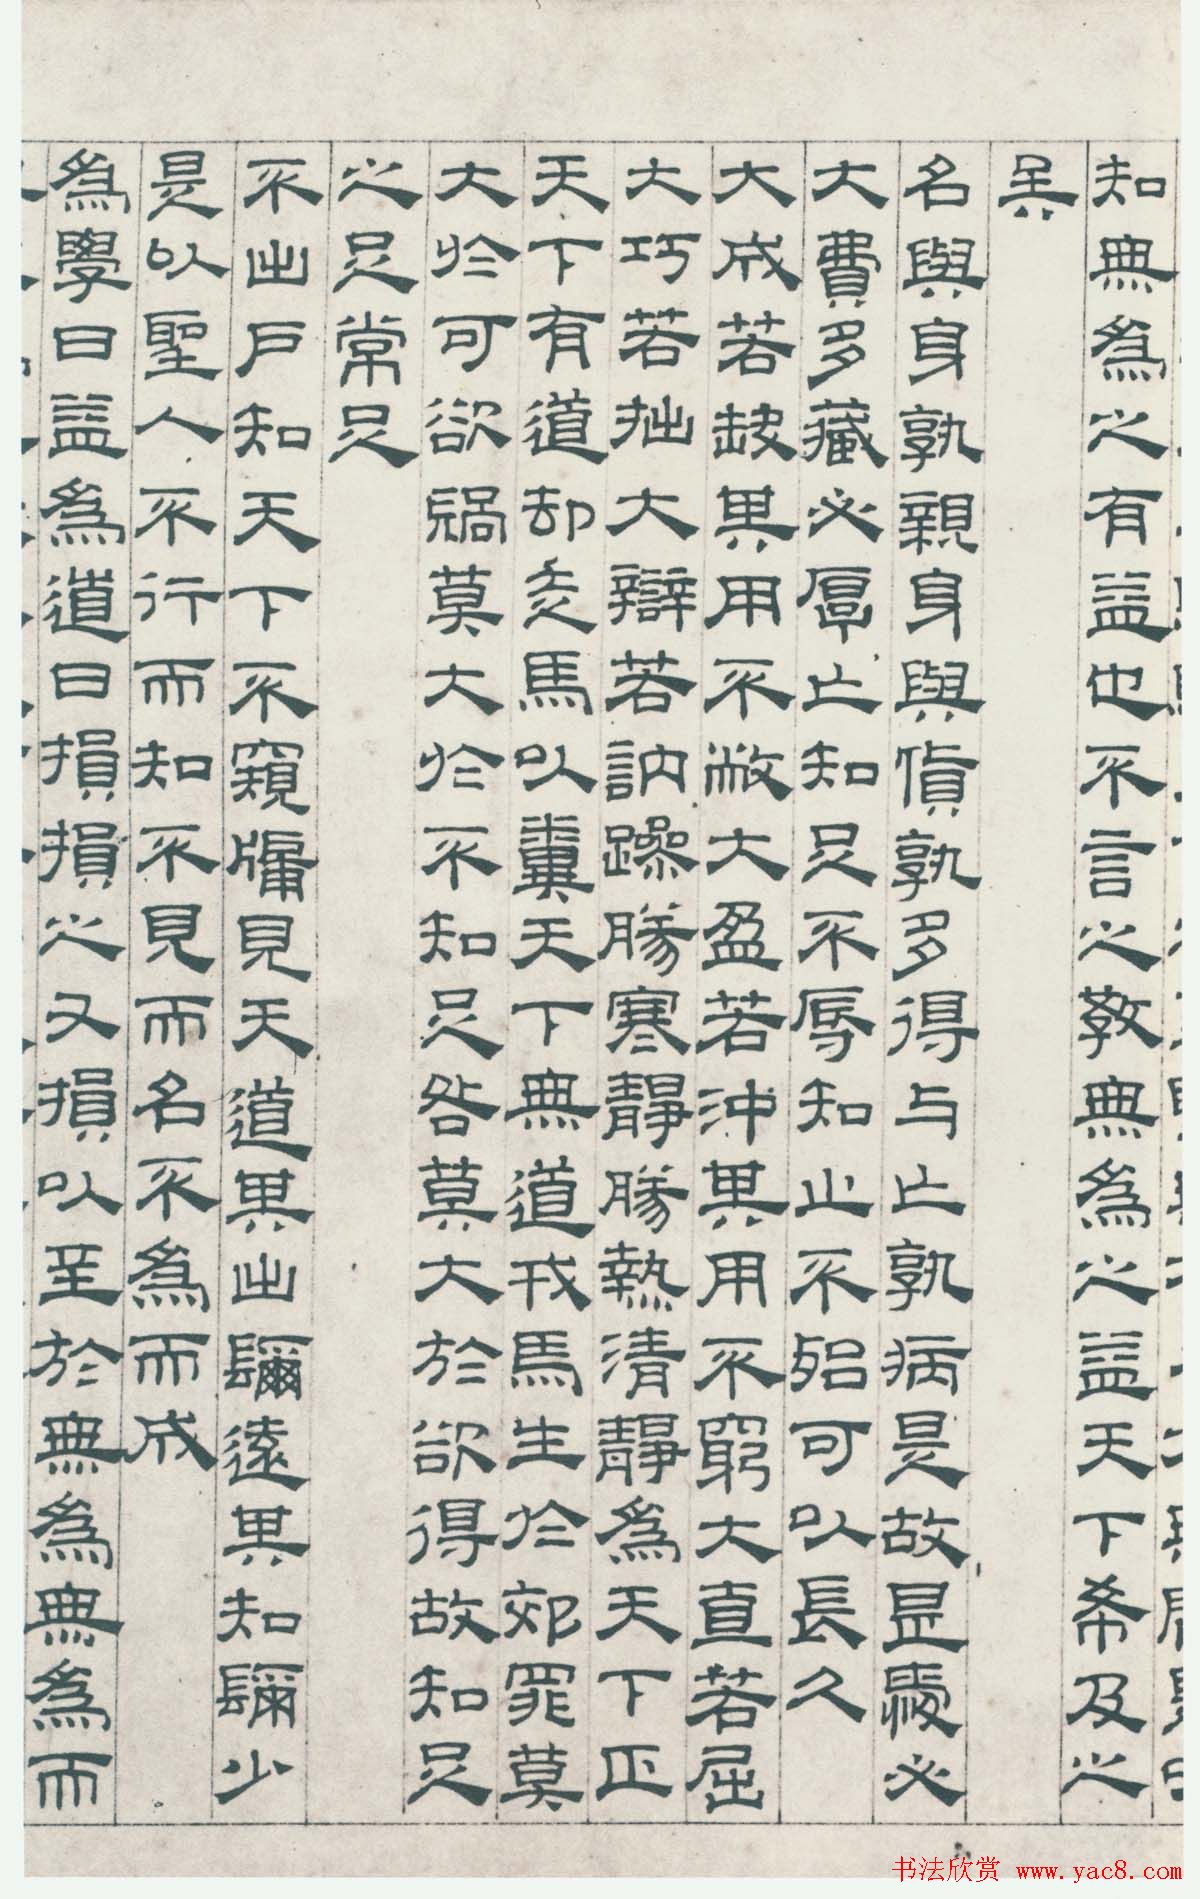 知無爲之有益也不言之教無爲之益天下希及之
矣
名與身孰親身與貨孰多得与亡孰病是故甚愛必
大費多藏必厚亡知足不辱知止不殆可以長久
大成若缺其用不敝大盈若沖其用不窮大直若屈
大巧若拙大辯若訥躁勝寒靜勝熱清靜爲天下正
天下有道却走馬以糞天下無道戎馬生於郊罪莫
大於可欲禍莫大於不知足咎莫大於欲得故知足
之足常足
不出戶知天下不窺牖見天道其出镾遠其知镾少
是以聖人不行而知不見而名不爲而成
爲學日益爲道日損損之又損以至於無爲無爲而
书法欣赏 www.yac8.com